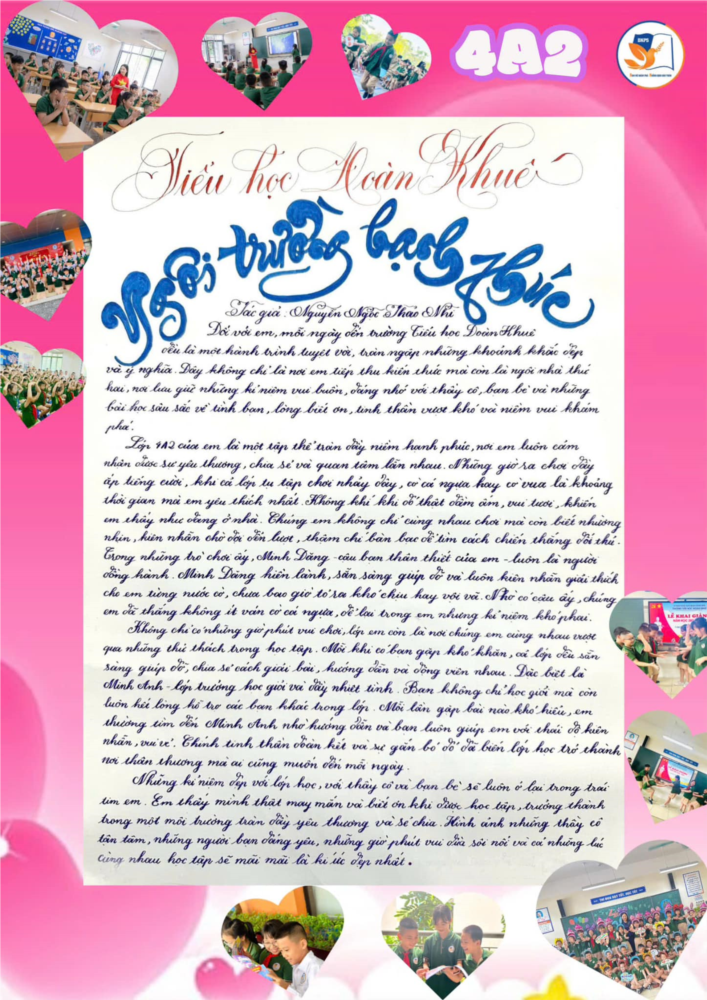 4A2
Tiểu học Đoàn Khuê
Ngôi trường hạnh phúc
Tác giả: Nguyễn Ngọc Thảo Nhi
Đối với em, mỗi ngày đến trường Tiểu học Đoàn Khuê
đều là một hành trình tuyệt vời, tràn ngập những khoảnh khắc đẹp
và ý nghĩa. Đây không chỉ là nơi em tiếp thu kiến thức mà còn là ngôi nhà thứ
hai, nơi lưu giữ những kỉ niệm vui buồn, đáng nhớ với thầy cô, bạn bè và những
bài học sâu sắc về tình bạn, lòng biết ơn, tinh thần vượt khó và niềm vui khám
phá.
Lớp 4A2 của em là một tập thể tràn đầy niềm hạnh phúc, nơi em luôn cảm
nhận được sự yêu thương, chia sẻ và quan tâm lẫn nhau. Những giờ ra chơi đầy
ắp tiếng cười, khi cả lớp tụ tập chơi nhảy dây, cờ cá ngựa hay cờ vua là khoảng
thời gian mà em yêu thích nhất. Không khí khi đó thật đầm ấm, vui tươi, khiến
em thấy như đang ở nhà. Chúng em không chỉ cùng nhau chơi mà còn biết nhường
nhịn, kiên nhẫn chờ đợi đến lượt, thậm chí bàn bạc để tìm cách chiến thắng đối thủ.
Trong những trò chơi ấy, Minh Đăng - cậu bạn thân thiết của em - luôn là người
đồng hành. Minh Đăng hiền lành, sẵn sàng giúp đỡ và luôn kiên nhẫn giải thích
cho em từng nước cờ, chưa bao giờ tỏ ra khó chịu hay vội vã. Nhờ có cậu ấy, chúng
em đã thắng không ít ván cờ cá ngựa, để lại trong em những kỉ niệm khó phai.
Không chỉ có những giờ phút vui chơi, lớp em còn là nơi chúng em cùng nhau vượt
qua những thử thách trong học tập. Mỗi khi có bạn gặp khó khăn, cả lớp đều sẵn
sàng giúp đỡ, chia sẻ cách giải bài, hướng dẫn và động viên nhau. Đặc biệt là
Minh Anh - lớp trưởng học giỏi và đầy nhiệt tình. Bạn không chỉ học giỏi mà còn
luôn hết lòng hỗ trợ các bạn khác trong lớp. Mỗi lần gặp bài nào khó hiểu, em
thường tìm đến Minh Anh nhờ hướng dẫn và bạn luôn giúp em với thái độ kiên
nhẫn, vui vẻ. Chính tinh thần đoàn kết và sự gắn bó đó đã biến lớp học trở thành
nơi thân thương mà ai cũng muốn đến mỗi ngày.
Những kỉ niệm đẹp với lớp học, với thầy cô và bạn bè sẽ luôn ở lại trong trái
tim em. Em thấy mình thật may mắn và biết ơn khi được học tập, trưởng thành
trong một môi trường tràn đầy yêu thương và sẻ chia. Hình ảnh những thầy cô
tận tâm, những người bạn đáng yêu, những giờ phút vui đùa sôi nổi và cả những lúc
cùng nhau học tập sẽ mãi mãi là kí ức đẹp nhất.
LỄ KHAI GIẢNG